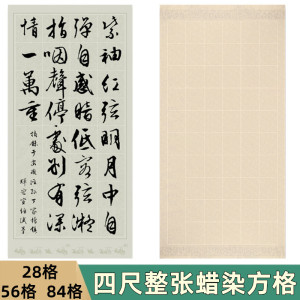 紫袖紅弦明月中自
彈自感暗低容弦凝
指咽聲停處别有深
情一萬重
28格
56格 84格
四尺整张蜡染方格